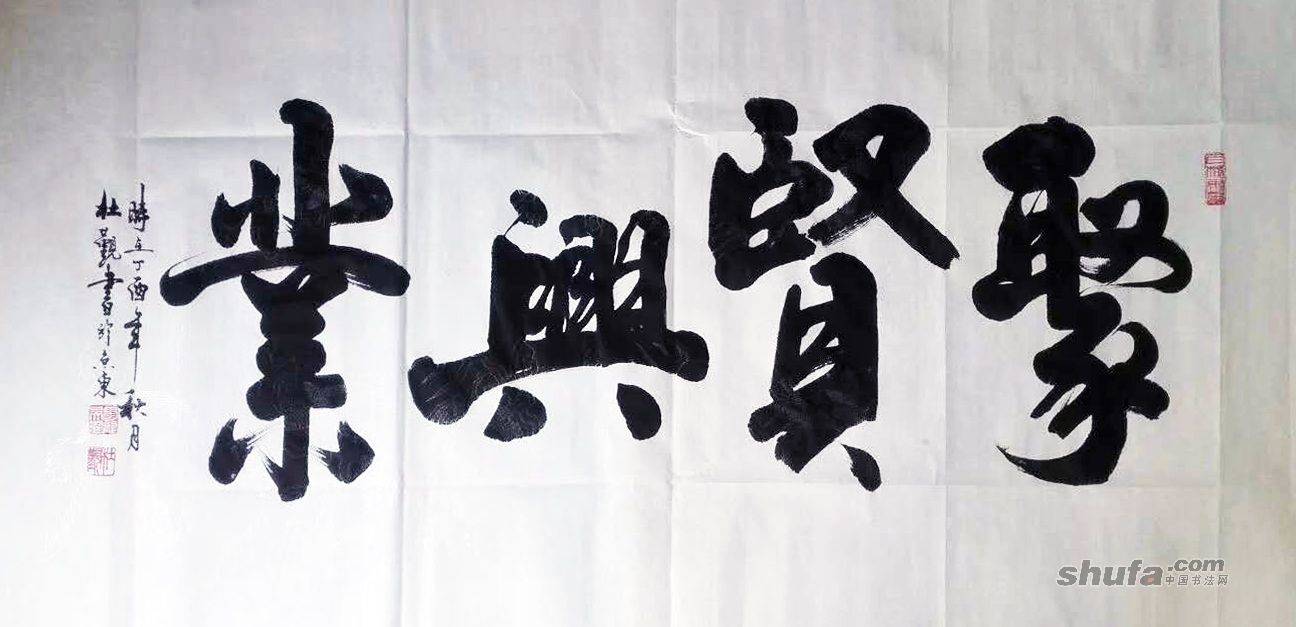 聚賢興業
時在丁酉年秋月
杜觀書於京東
shufa.com
中国书法网